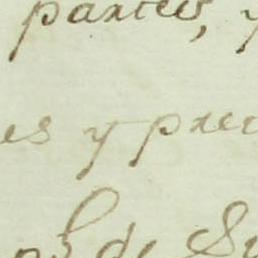 partes, y
es y prec
de Su